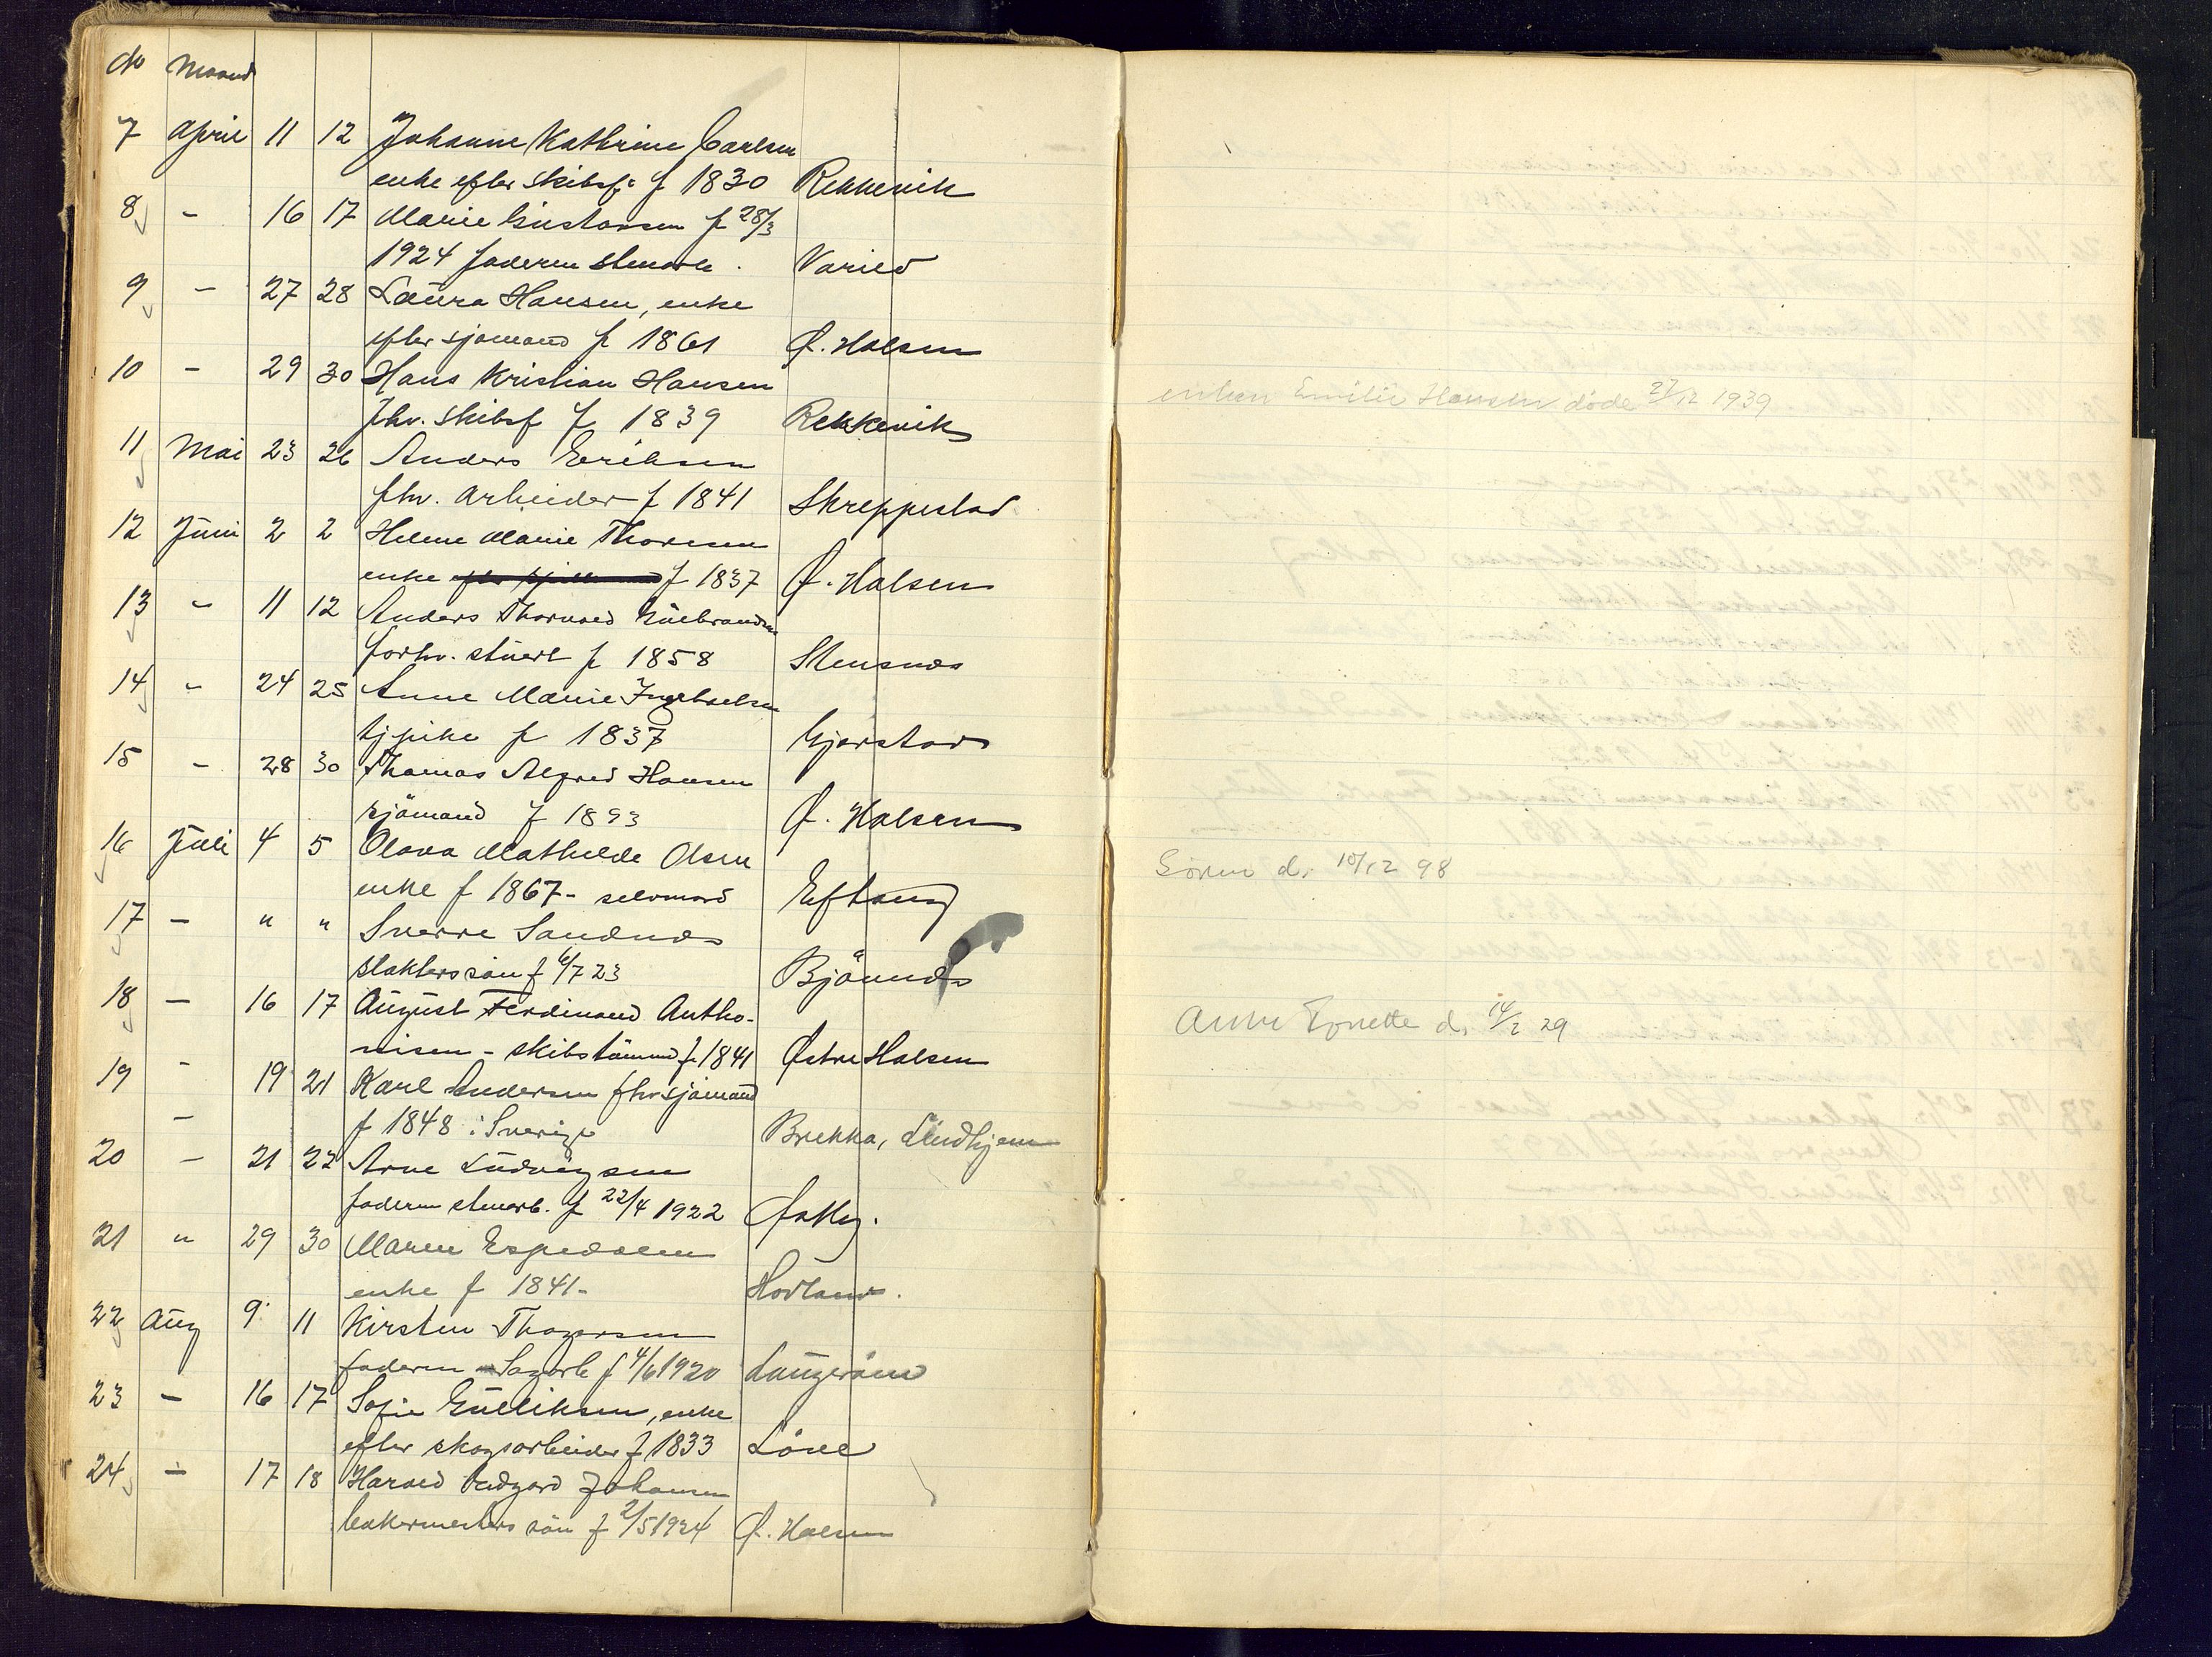 No Maaned
7 April 11 12 Johanne Kathrine Carlsen
enke efter skibsf. f 1830 Rekkevik
8 - 16 17 Marie Gustavsen f 28/3
1924 faderen stenarb. Varild
9 - 27 28 Laura Hansen, enke
efter sjømand f 1861 Ø. Halsen
10 - 29 30 Hans Kristian Hansen
fhv. skibsf f 1839 Rekkevik
11 Mai 23 26 Anders Eriksen
fhv. arbeider f 1841 Skreppestad
12 Juni 2 2 Helene Marie Thoresen
enke f 1837 Ø. Halsen
13 - 11 12 Anders Thorvald Gulbrandsen
forhv. stuert f 1858 Stensnes
14 - 24 25 Anne Marie Ingebretsen
tj pike f 1837 Gjerstad
15 - 28 30 Thomas Alfred Hansen
sjömand f 1893 Ø. Halsen
16 Juli 4 5 Olava Mathilde Olsen
enke f 1867 - selvmord Eftang
17 - " " Sverre Sandnes
slakters sön f 6/7 23 Bjönnes
18 - 16 17 August Ferdinand Antho-
nisen - skibstömmerm f. 1841 Østre Halsen
19 - 19 21 Karl Andersen fhv sjömand
- f 1848 i Sverige Brekka, Lindhjem
20 - 21 22 Arne Ludvigsen
faderen stenarb. f 22/4 1922 Østby.
21 " 29 30 Maren Espedalen
enke f 1841 - Hovland.
22 Aug 9 11 Kirsten Thogersen
faderen Sagarb f 4/6 1920 Langeråne
23 - 16 17 Sofie Gulliksen, enke
efter skogsarbeider f 1833 Löve
24 - 17 18 Harald Johansen
bakermesters sön f 2/5 1924 Ø. Halsen
enken Emilie Hansen døde 27/12 1939
Søren d. 10/12 98
Anne d. 14/2 29